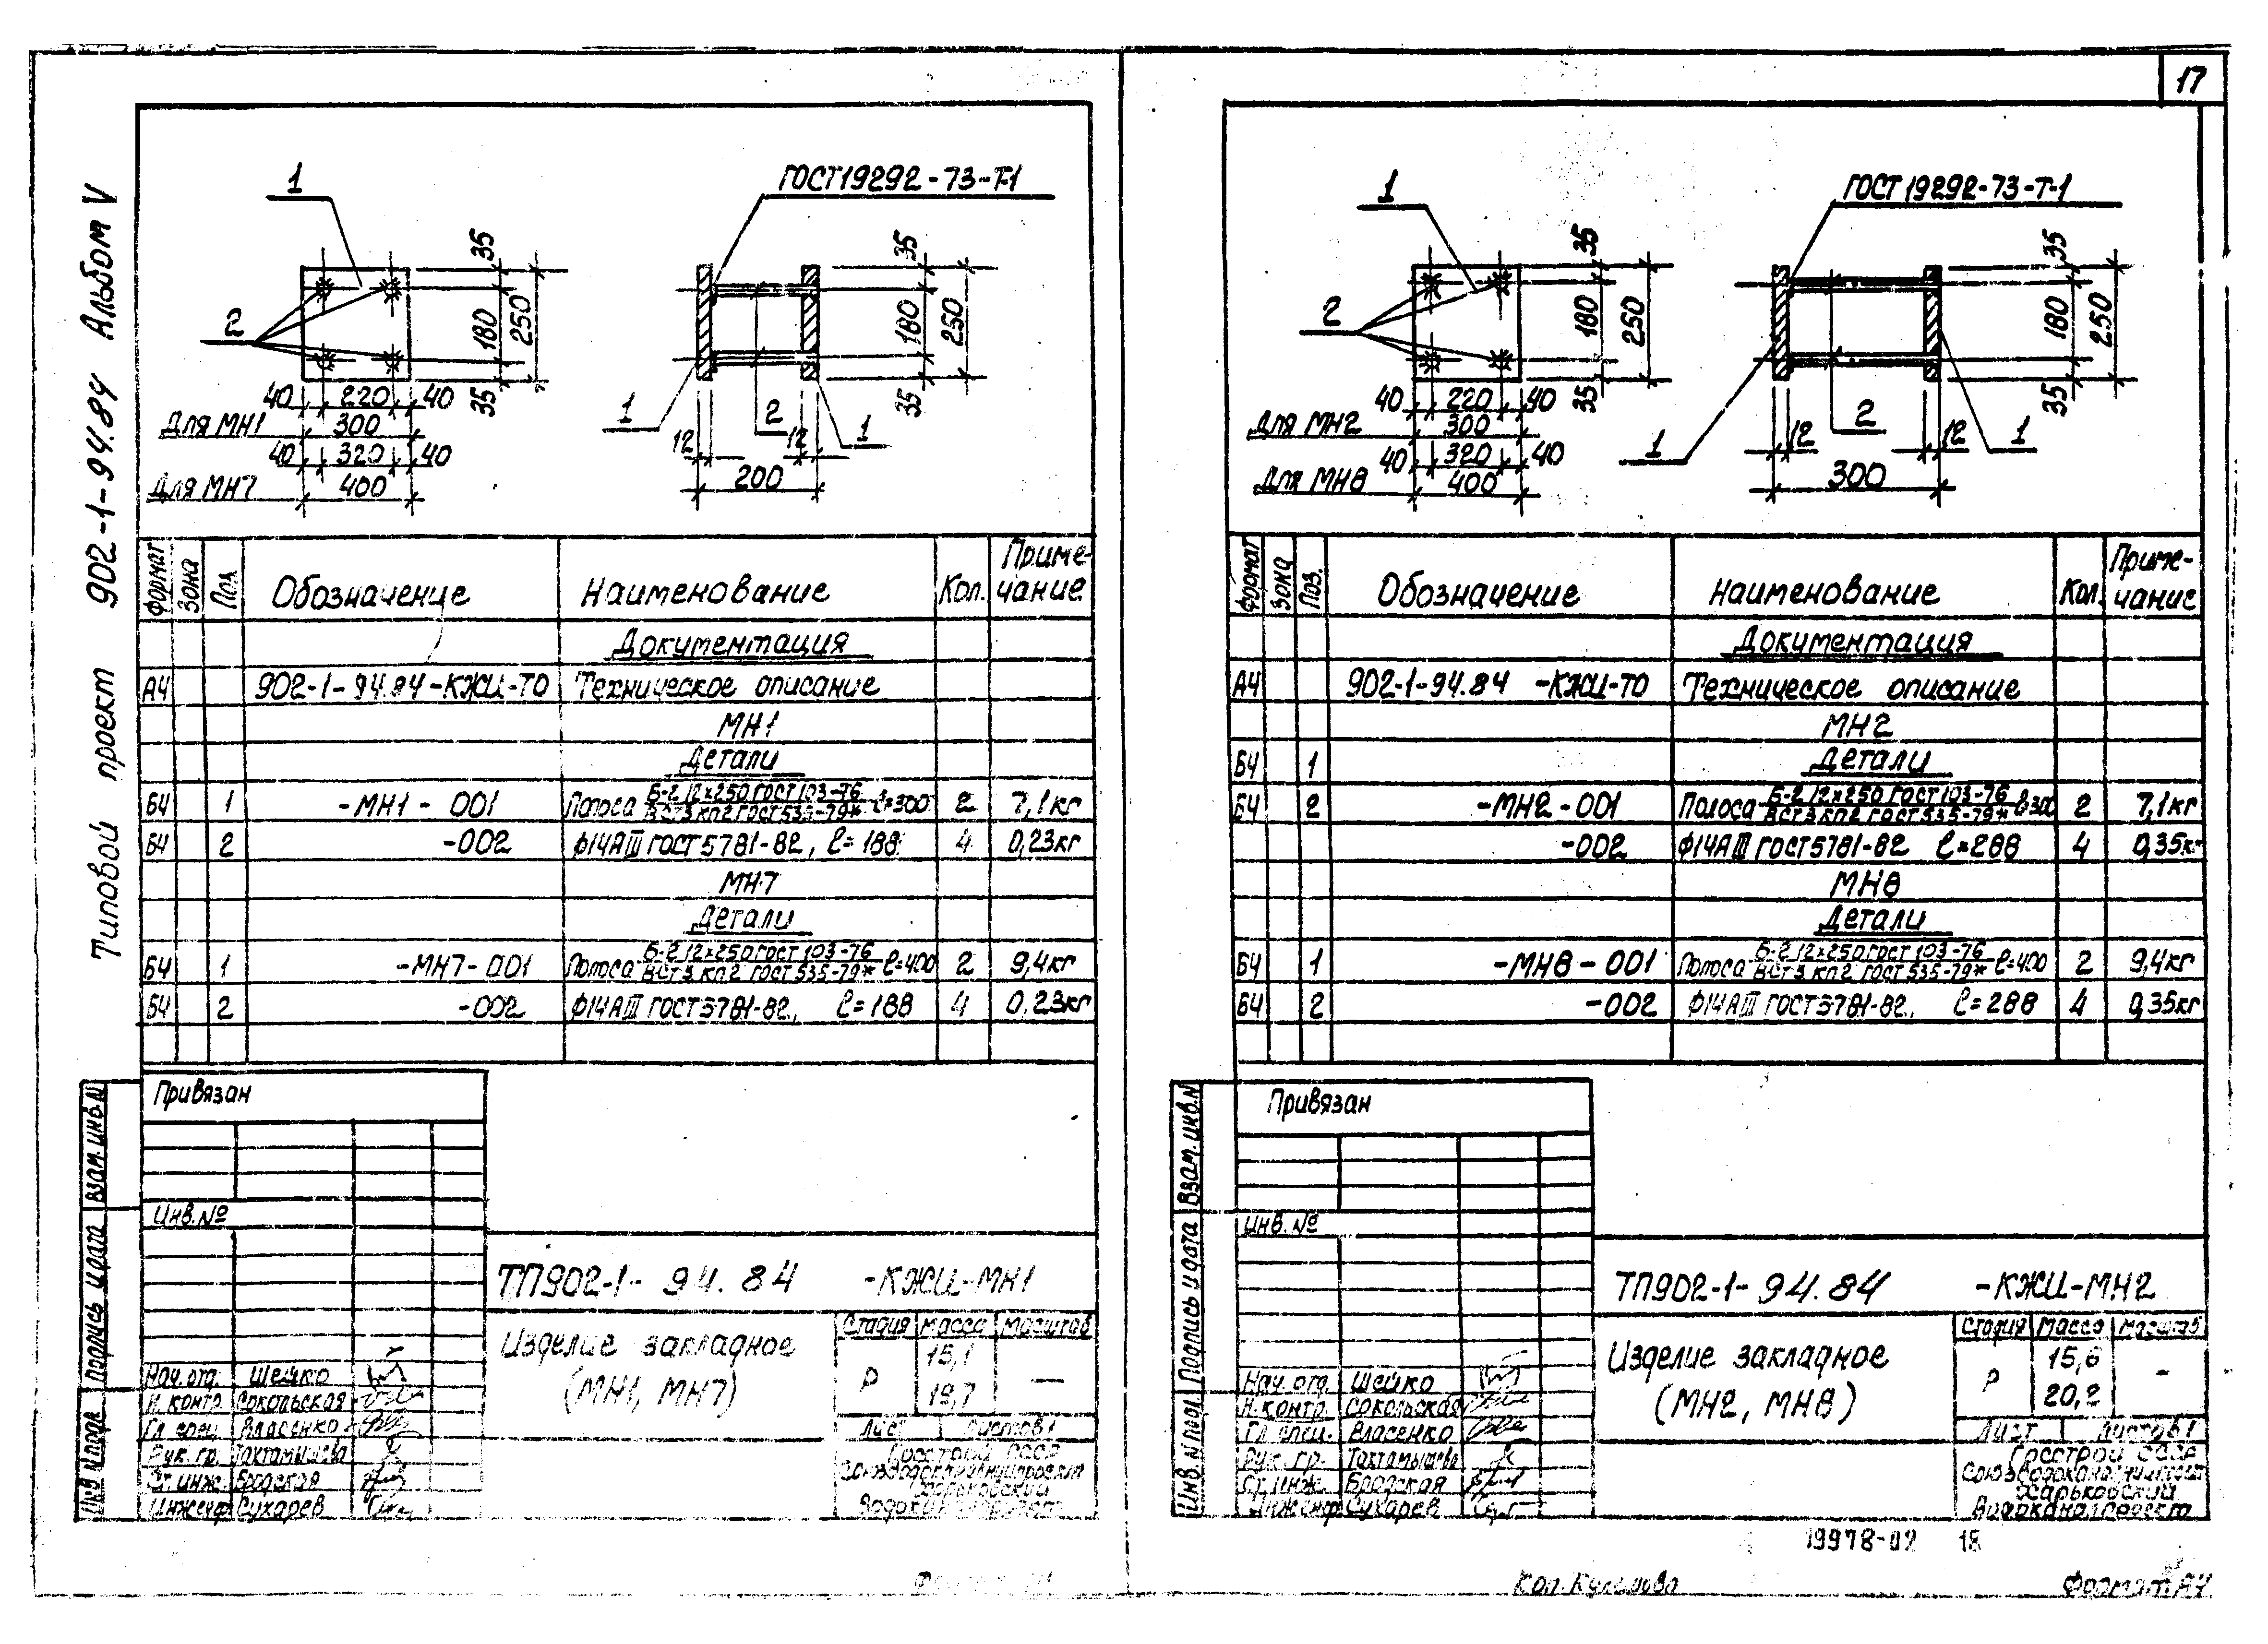 17
Типовой проект 902-1-94.84 Альбом V
1
ГОСТ19292-73-Т-1
2
35
180
250
35
40 220 40
Для МН1 300
40 320 40
Для МН7 400
35
180
250
35
1
2
1
12
12
200
Формат Зона Поз. Обозначение Наименование Кол. Приме-
чание
Документация
А4 902-1-94.84-КЖИ-ТО Техническое описание
МН1
Детали
Б4 1 -МН1-001 Полоса Б-2 12х250 ГОСТ 103-76 ВСт3 кп2 ГОСТ 535-79* ℓ=300 2 7,1кг
Б4 2 -002 Ф14АIII ГОСТ5781-82, ℓ=188 4 0,23кг
МН7
Детали
Б4 1 -МН7-001 Полоса Б-2 12х250 ГОСТ 103-76 ВСт3 кп2 ГОСТ 535-79* ℓ=400 2 9,4кг
Б4 2 -002 Ф14АIII ГОСТ5781-82, ℓ=188 4 0,23кг
Привязан
Инв.№
ТП902-1-94.84 -КЖИ-МН1
Изделие закладное
(МН1, МН7)
Стадия Масса Масштаб
Р 15,1 —
19,7
Лист Листов 1
Госстрой СССР
Союзводоканалниипроект
Харьковский
Водоканалпроект
Нач. отд. Шейко
Н. контр. Сокольская
Гл. спец. Власенко
Рук. гр. Тахтамышева
Ст. инж. Бродская
Инженер Сухарев
Взам. инв. N
Подпись и дата
Инв. N подл.
1
ГОСТ 19292-73-Т-1
2
35
180
250
35
40 220 40
Для МН2 300
40 320 40
Для МН8 400
35
180
250
35
1
2
1
12
12
300
Формат Зона Поз. Обозначение Наименование Кол. Приме-
чание
Документация
А4 902-1-94.84 -КЖИ-ТО Техническое описание
МН2
Б4 1 Детали
Б4 2 -МН2-001 Полоса Б-2 12х250 ГОСТ 103-76 ВСт3 кп2 ГОСТ 535-79* ℓ=300 2 7,1кг
-002 Ф14АIII ГОСТ5781-82 ℓ=288 4 0,35кг
МН8
Детали
Б4 1 -МН8-001 Полоса Б-2 12х250 ГОСТ 103-76 ВСт3 кп2 ГОСТ 535-79* ℓ=400 2 9,4кг
Б4 2 -002 Ф14АIII ГОСТ5781-82, ℓ=288 4 0,35кг
Привязан
Инв. №
ТП902-1-94.84 -КЖИ-МН2
Изделие закладное
(МН2, МН8)
Стадия Масса Масштаб
Р 15,6 —
20,2
Лист Листов 1
Госстрой СССР
Союзводоканалниипроект
Харьковский
Водоканалпроект
Нач. отд. Шейко
Н. контр. Сокольская
Гл. спец. Власенко
Рук. гр. Тахтамышева
Ст. инж. Бродская
Инженер Сухарев
Взам. инв. N
Подпись и дата
Инв. N подл.
19978-02 18
Кол.
Формат А4